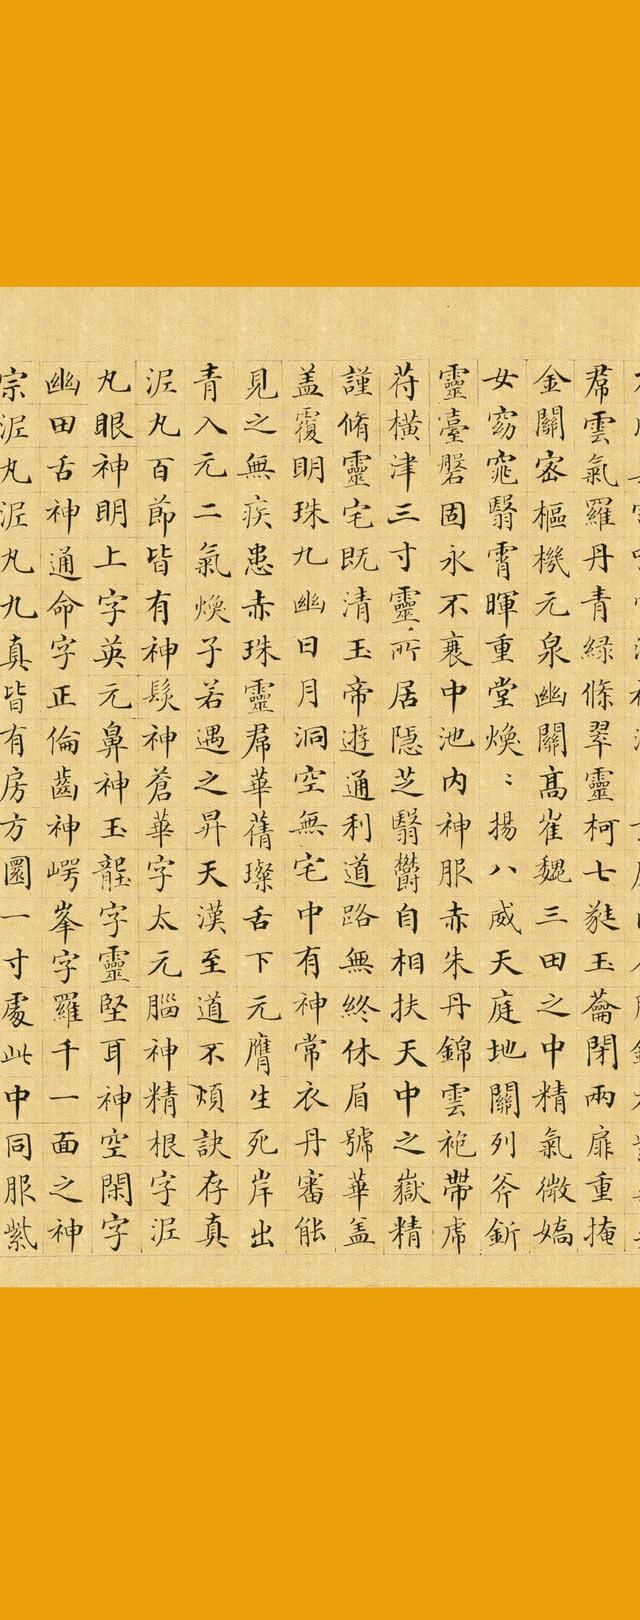 帬雲氣羅丹青綠條翠靈柯七蕤玉籥閉兩扉重掩
金關密樞機元泉幽關高崔魏三田之中精氣微嬌
女窈窕翳霄暉重堂煥〻揚八威天庭地關列斧釿
靈臺磐固永不衰中池內神服赤朱丹錦雲袍帶虎
苻橫津三寸靈所居隱芝翳欝自相扶天中之嶽精
謹脩靈宅既清玉帝遊通利道路無終休眉號華盖
盖覆明珠九幽日月洞空無宅中有神常衣丹審能
見之無疾患赤珠靈帬華蒨璨舌下元膺生死岸出
青入元二氣煥子若遇之昇天漢至道不煩訣存真
泥丸百節皆有神髮神蒼華字太元腦神精根字泥
丸眼神明上字英元鼻神玉龍字靈堅耳神空閑字
幽田舌神通命字正倫齒神崿峯字羅千一面之神
宗泥丸泥丸九真皆有房方圓一寸處此中同服紫